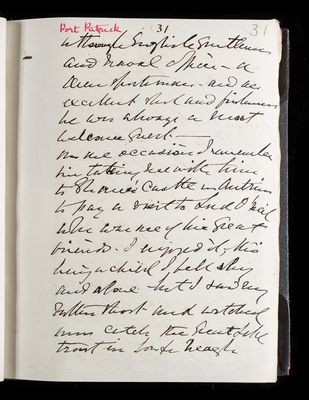 Port Patrick 31
31
a thorough English Gentleman
and naval officer — a
keen sportsman — and an
excellent shot and fisherman
he was always a most
welcome guest. —
on one occasion I remember
his taking me with him
to Shane's Castle in Antrim
to pay a visit to Lord O'Neil
who was one of his great
friends. I enjoyed it, tho'
being a child I felt shy
and alone — but I saw my
Father shoot and watched
men catch the great Lake
trout in Lough Neagh